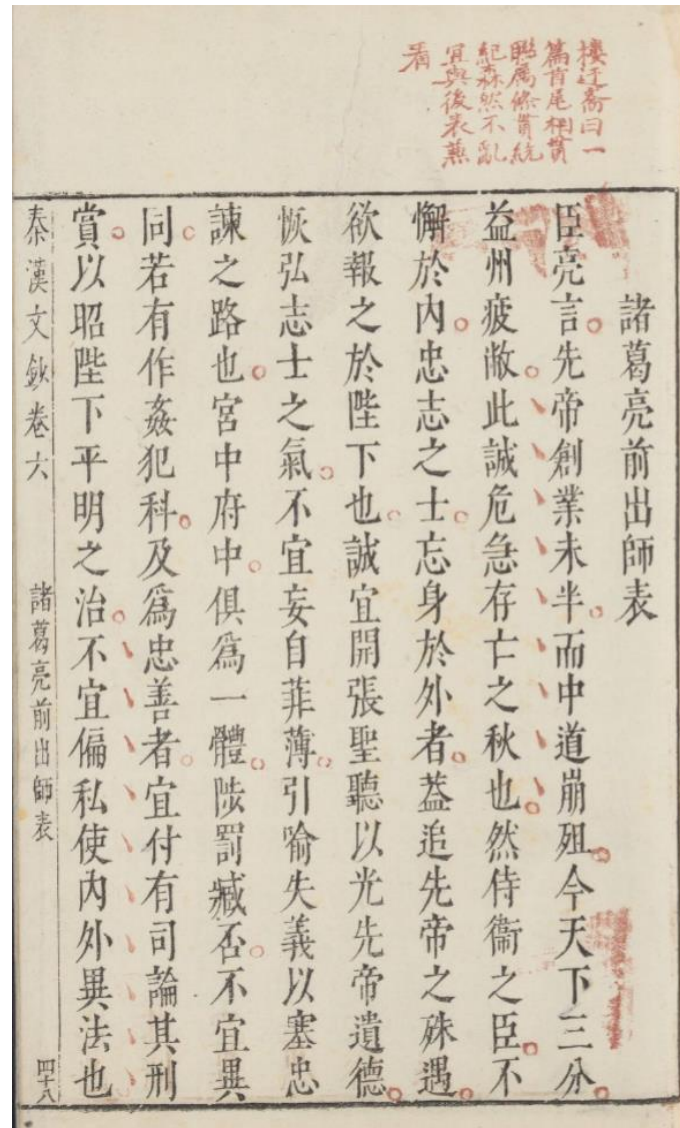 樓迂齋曰一
篇首尾相貫
聯屬條貫統
紀森然不亂
宜與後表兼
看
諸葛亮前出師表
臣亮言先帝創業未半而中道崩殂今天下三分
益州疲敝此誠危急存亡之秋也然侍衞之臣不
懈於內忠志之士忘身於外者葢追先帝之殊遇
欲報之於陛下也誠宜開張聖聽以光先帝遺德
恢弘志士之氣不宜妄自菲薄引喻失義以塞忠
諫之路也宮中府中俱爲一體陟罰臧否不宜異
同若有作姦犯科及爲忠善者宜付有司論其刑
賞以昭陛下平明之治不宜偏私使內外異法也
秦漢文鈔卷六
諸葛亮前出師表
四十八